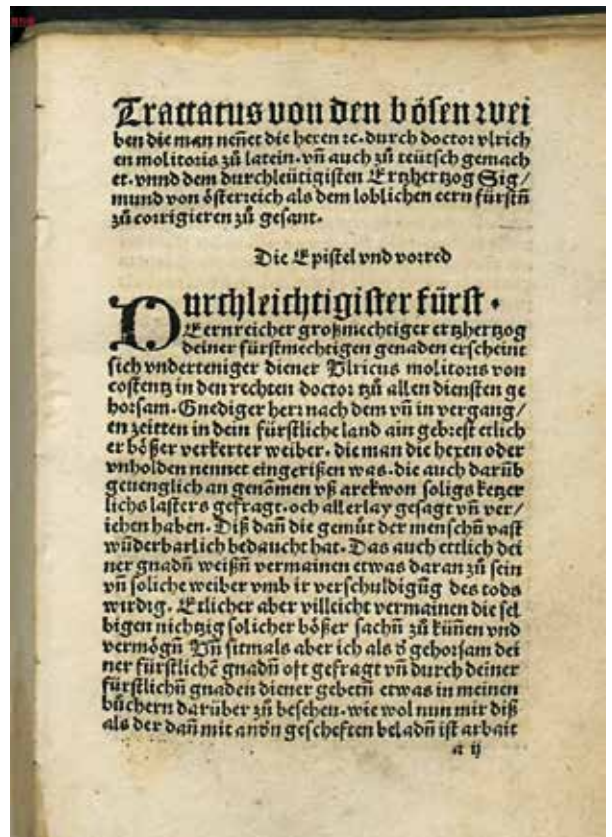 Tractatus von den bösen wei
ben die man nen̄et die hexen ⁊c. durch doctor vlrich
en molitoris zů latein. vn̄ auch zů teütsch gemach
et. vnnd dem durchleütigisten Ertzhertzog Sig/
mund von österreich als dem loblichen eern fürstn̄
zů corrigieren zů gesant.
Die Epistel vnd vorred
Durchleichtigister fürst.
Eernreicher großmechtiger ertzhertzog
deiner fürstmechtigen genaden erscheint
sich vnderteniger diener Vlricus molitoris von
costentz in den rechten doctor tzů allen diensten ge
horsam. Gnediger herr nach dem vn̄ in vergang/
en zeitten in dein fürstliche land ain gebrest etlich
er bößer verkerter weiber. die man die hexen oder
vnholden nennet eingerißen was. die auch darūb
geuenglich an genōmen vß arckwon soligs ketzer
lichs lasters gefragt. och allerlay gesagt vn̄ ver/
iehen haben. Diß dan̄ die gemüt der menschn̄ vast
wūderbarlich bedaucht hat. Das auch ettlich dei
ner gnadn̄ weißn̄ vermainen etwas daran zů sein
vn̄ soliche weiber vmb ir verschuldigūg des tods
wirdig. Etlicher aber villeicht vermainen die sel
bigen nichtzig solicher bößer sachn̄ zů kün̄en vnd
vermögn̄ Vn̄ sitmals aber ich als d̄ gehorsam dei
ner fürstlichē gnadn̄ oft gefragt vn̄ durch deiner
fürstlichn̄ gnaden diener gebetn̄ etwas in meinen
bůchern darüber zů besehen. wie wol nun mir diß
als der dan̄ mit andn̄ gescheften beladn̄ ist arbait
a ij